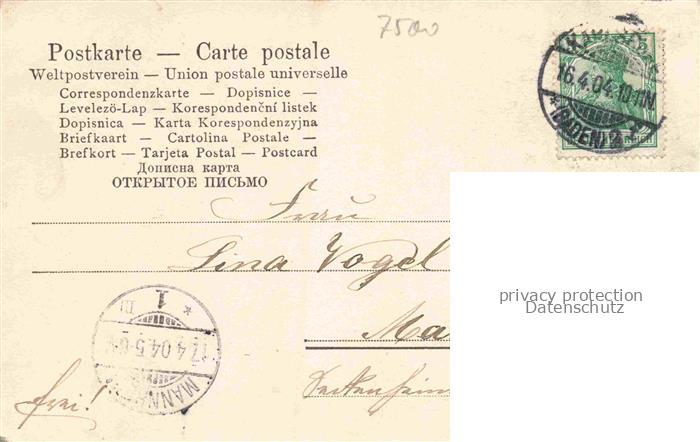 7500
Postkarte — Carte postale
Weltpostverein — Union postale universelle
Correspondenzkarte — Dopisnice —
Levelező-Lap — Korespondenční listek
Dopisnica — Karta Korespondenzyjna
Briefkaart — Cartolina Postale —
Brefkort — Tarjeta Postal — Postcard
Дописна карта
ОТКРЫТОЕ ПИСЬМО
16.4.04.
* (BADEN) 2 *
Frau
Lina Vogel
Ma
frei!
* 1
17.4.04.5-6
MANN
privacy protection
Datenschutz